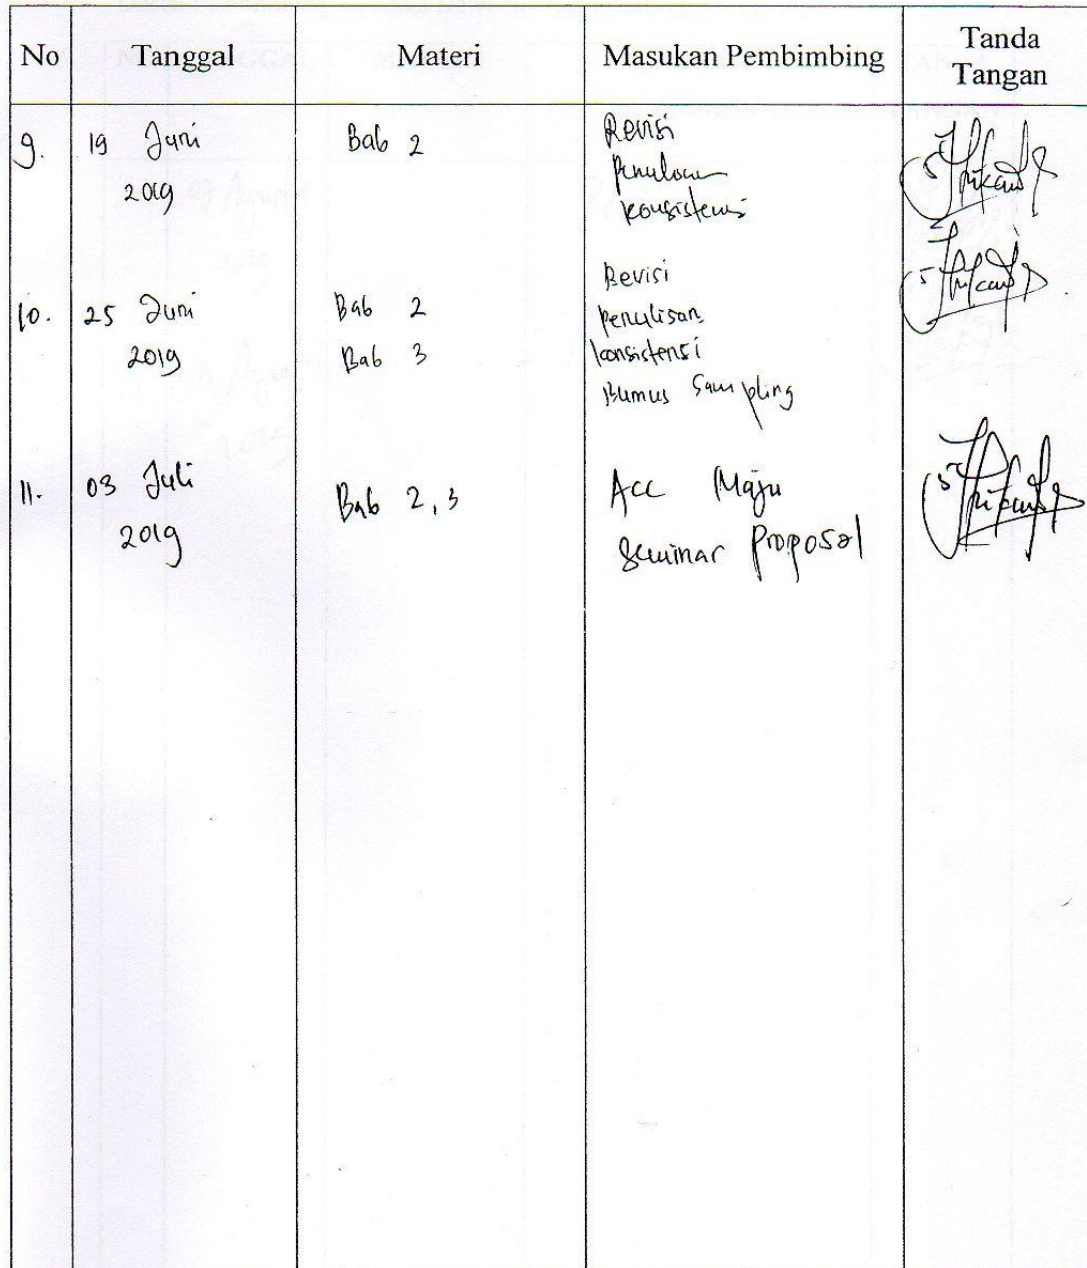 No Tanggal Materi Masukan Pembimbing Tanda Tangan
9. 19 Juni Bab 2 Revisi
2019 penulisan
konsistensi
10. 25 Juni Bab 2 Revisi
2019 Bab 3 penulisan
konsistensi
Rumus Sampling
11. 03 Juli Bab 2, 3 Acc Maju
2019 Seminar Proposal